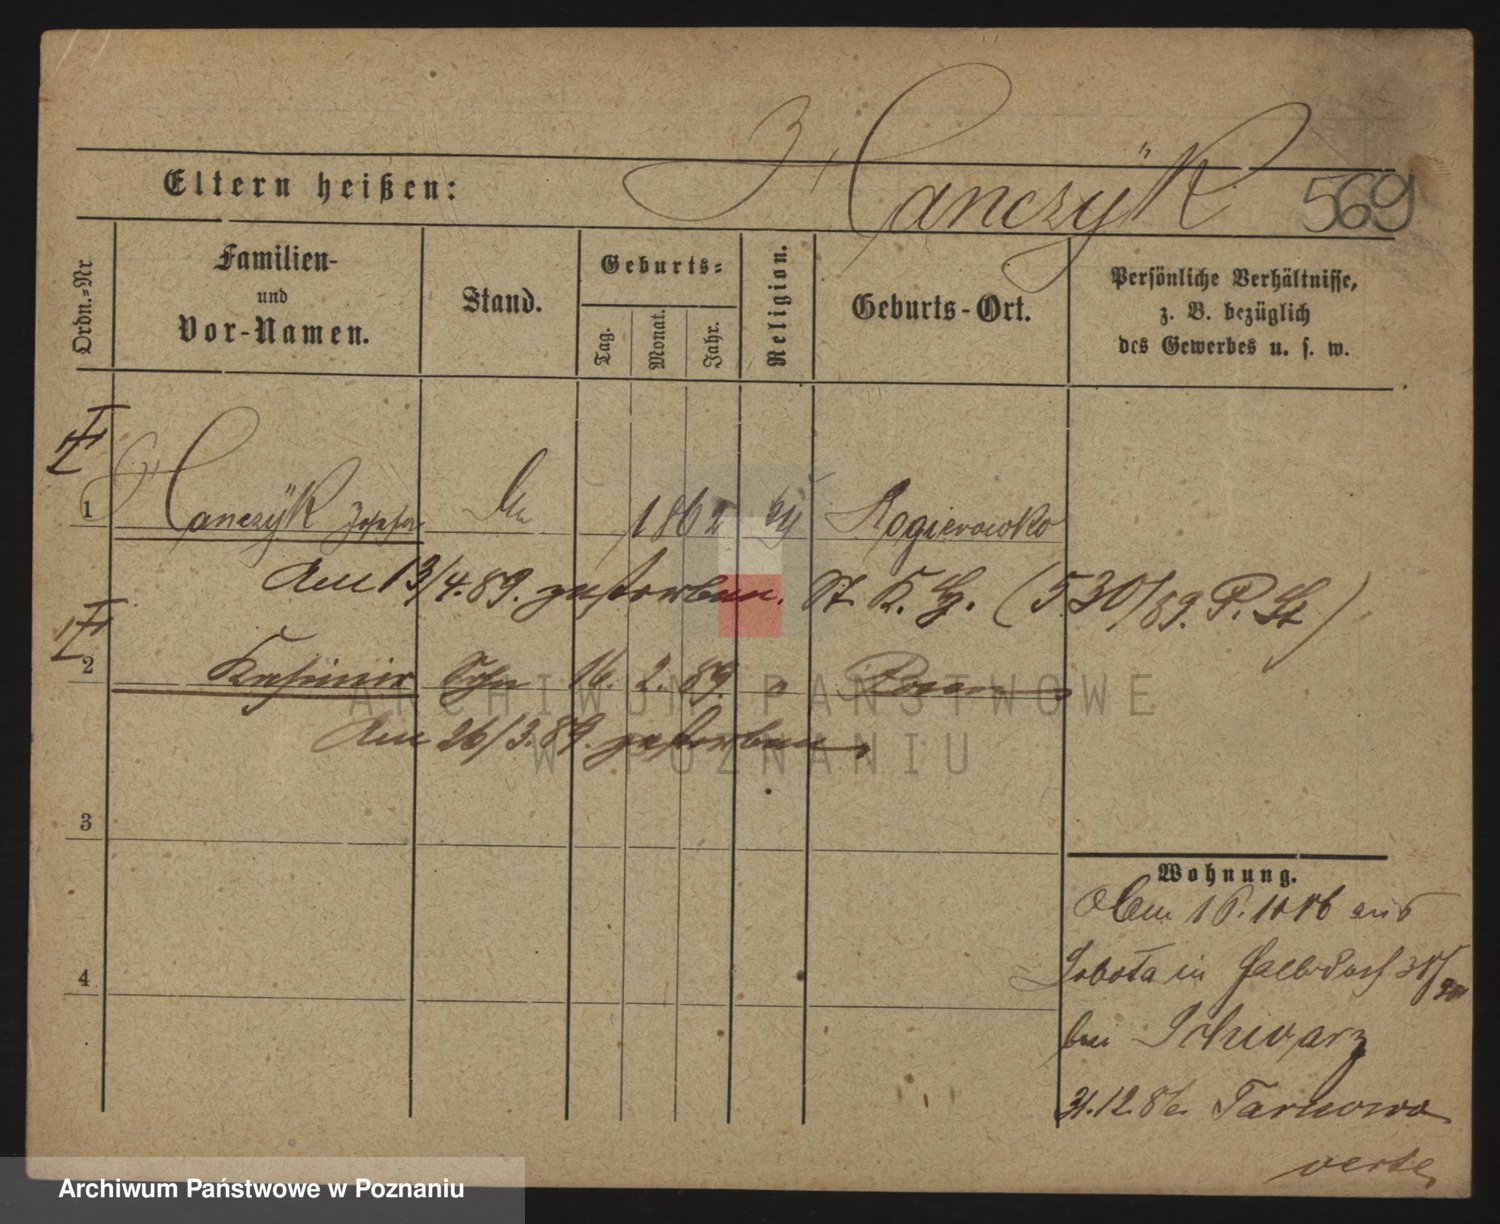 Hanczÿk 569
Eltern heißen:
Ordn.-Nr
Familien-
und
Vor-Namen.
Stand.
Geburts-
Tag.
Monat.
Jahr.
Religion.
Geburts-Ort.
Persönliche Verhältnisse,
z. B. bezüglich
des Gewerbes u. s. w.
1 Hanczÿk Josefa 1862 Rogierowko
Am 13/4.89. gestorben. St. K. H. (530/89. P. St)
2 Kasimir Sohn 16. 2. 89. " Posen
Am 26/3.89. gestorben
3
4
Wohnung.
aus
Sobota in Halbdorf
bei Schwarz
31.12.86 Tarnowo
verte
ARCHIWUM PAŃSTWOWE
W POZNANIU
Archiwum Państwowe w Poznaniu